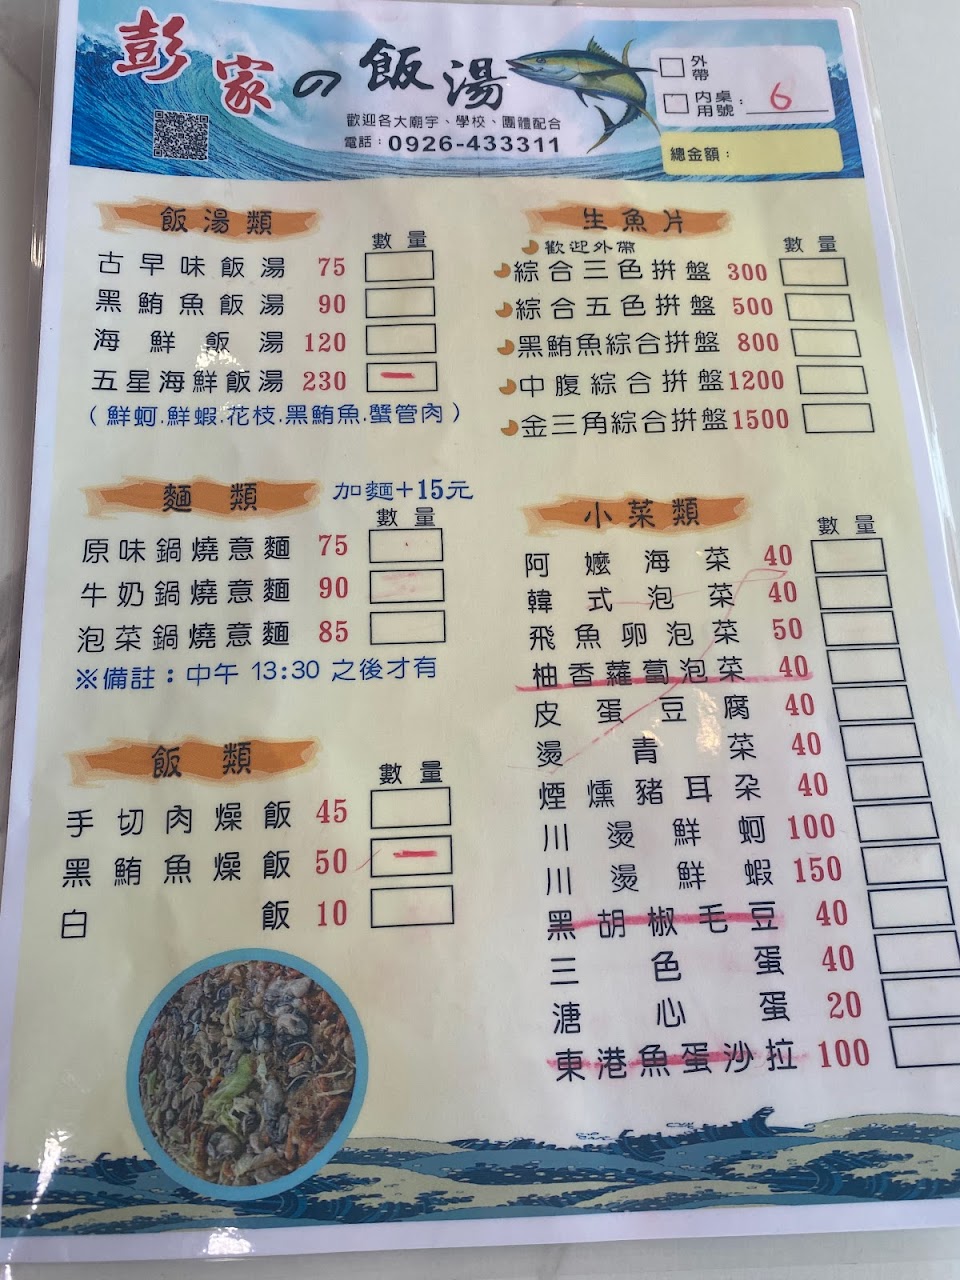 彭家の飯湯
歡迎各大廟宇、學校、團體配合
電話：0926-433311
外帶
內用 桌號：6
總金額：
飯湯類
數量
古早味飯湯 75
黑鮪魚飯湯 90
海鮮飯湯 120
五星海鮮飯湯 230
（鮮蚵.鮮蝦.花枝.黑鮪魚.蟹管肉）
麵類 加麵+15元
數量
原味鍋燒意麵 75
牛奶鍋燒意麵 90
泡菜鍋燒意麵 85
※備註：中午 13:30 之後才有
飯類
數量
手切肉燥飯 45
黑鮪魚燥飯 50
白飯 10
生魚片
歡迎外帶
數量
綜合三色拼盤 300
綜合五色拼盤 500
黑鮪魚綜合拼盤 800
中腹綜合拼盤 1200
金三角綜合拼盤 1500
小菜類
數量
阿嬤海菜 40
韓式泡菜 40
飛魚卵泡菜 50
柚香蘿蔔泡菜 40
皮蛋豆腐 40
燙青菜 40
煙燻豬耳朵 40
川燙鮮蚵 100
川燙鮮蝦 150
黑胡椒毛豆 40
三色蛋 40
溏心蛋 20
東港魚蛋沙拉 100